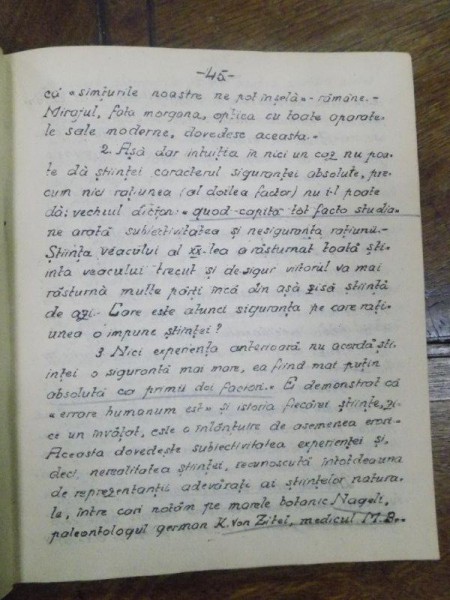 -45-
că "simțurile noastre ne pot înșela" - rămâne.-
Mirajul, fata morgana, optica cu toate aparate-
le sale moderne, dovedesc aceasta.-
2. Așă dar intuiția în nici un caz nu poa-
te dă științei caracterul siguranței absolute, pre-
cum nici rațiunea (al doilea factor) nu i-l poate
dă; vechiul dicton: "quod capita tot facto studia"
ne arată subiectivitatea și nesiguranța rațiunii.-
Știința veacului al XX-lea a răsturnat toată ști-
ința veacului trecut și de sigur viitorul va mai
răsturnă multe părți încă din așă zisă știință
de azi. Care este atunci siguranța pe care rați-
unea o impune științei?
3 Nici experiența anterioară nu acordă ști-
inței o siguranță mai mare, ea fiind mai puțin
absolută ca primii doi factori." E demonstrat că
"errare humanum est" și istoria fiecărei științe, zi-
ce un învățat, este o înlănțuire de asemenea erori-
Aceasta dovedește subiectivitatea experienței și,
deci, nerealitatea științei, recunoscută întotdeauna
de reprezentanții adevărați ai științelor natura-
le, între cari notăm pe marele botanic Nageli,
paleontologul german K. von Zitel, medicul M.B..